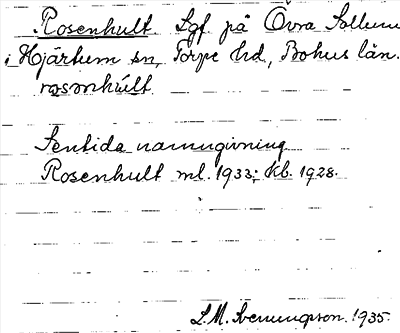 Rosenhult. Lgf. på Övra Sollum
i Hjärtum sn, Torpe hd, Bohus län.
rosənhúlt.
Sentida namngivning
Rosenhult ml. 1933; kb. 1928.
1935.